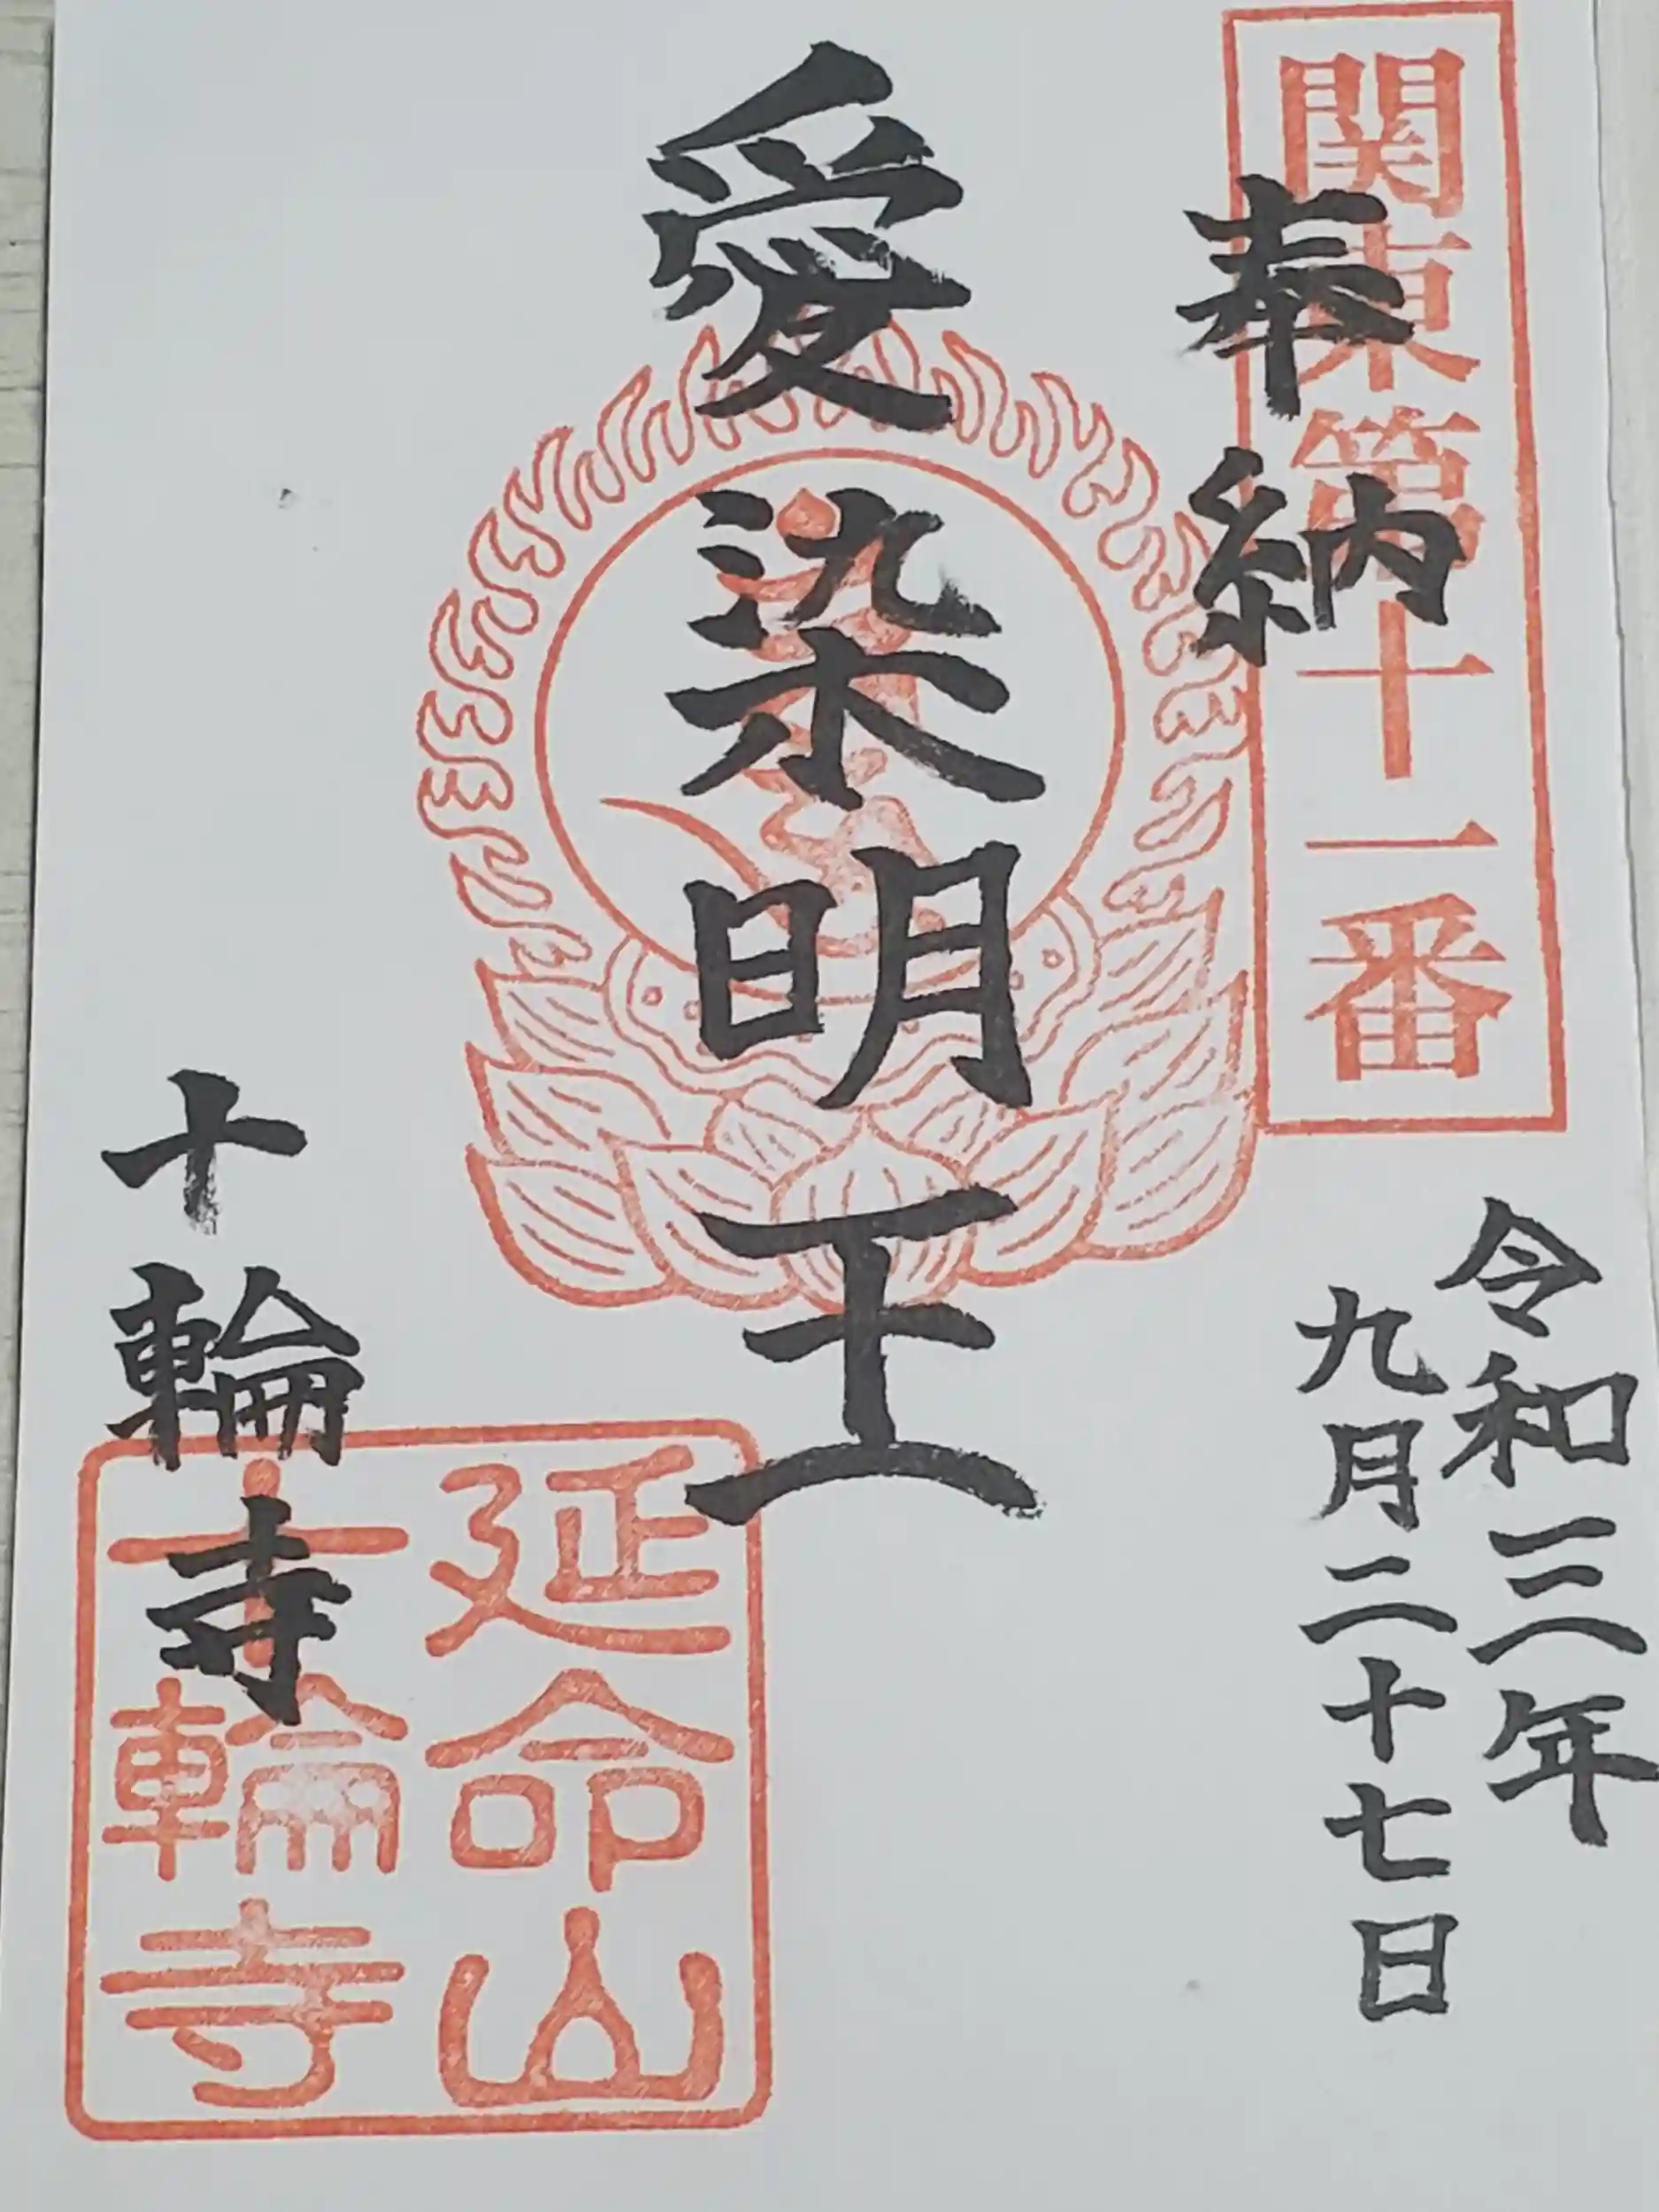 関東第十一番
奉納
令和三年
九月二十七日
愛染明王
十輪寺
延命山
十輪寺